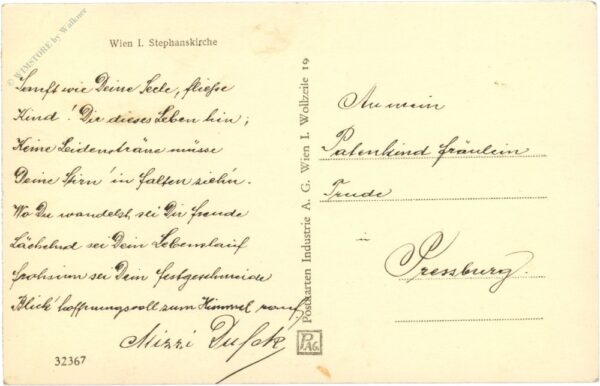 © WIMSTORE by Walkner
Wien I. Stephanskirche
Sanft wie Deine Seele, fließe
Kind! Dir dieses Leben hin;
Keine Leidensträne müsse
Deine Stirn' in falten ziehn.
Wo Du wandelst, sei Dir freude
Lächelnd sei Dein Lebenslauf
frohsinn sei Dein festgeschmeide
Blick' hoffnungsvoll zum Himmel rauf
Mizzi
32367
Postkarten Industrie A. G. Wien I. Wollzeile 19
PAG
An mein
Patenkind fräulein
Trude
in
Pressburg.